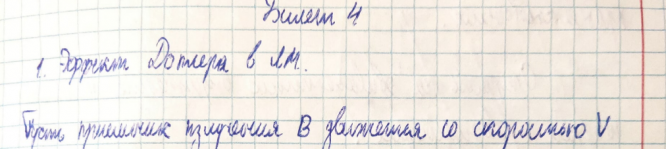 Билет 4
1. Эффект Доплера в ЛМ.
Пусть приемник излучения В движется со скоростью V